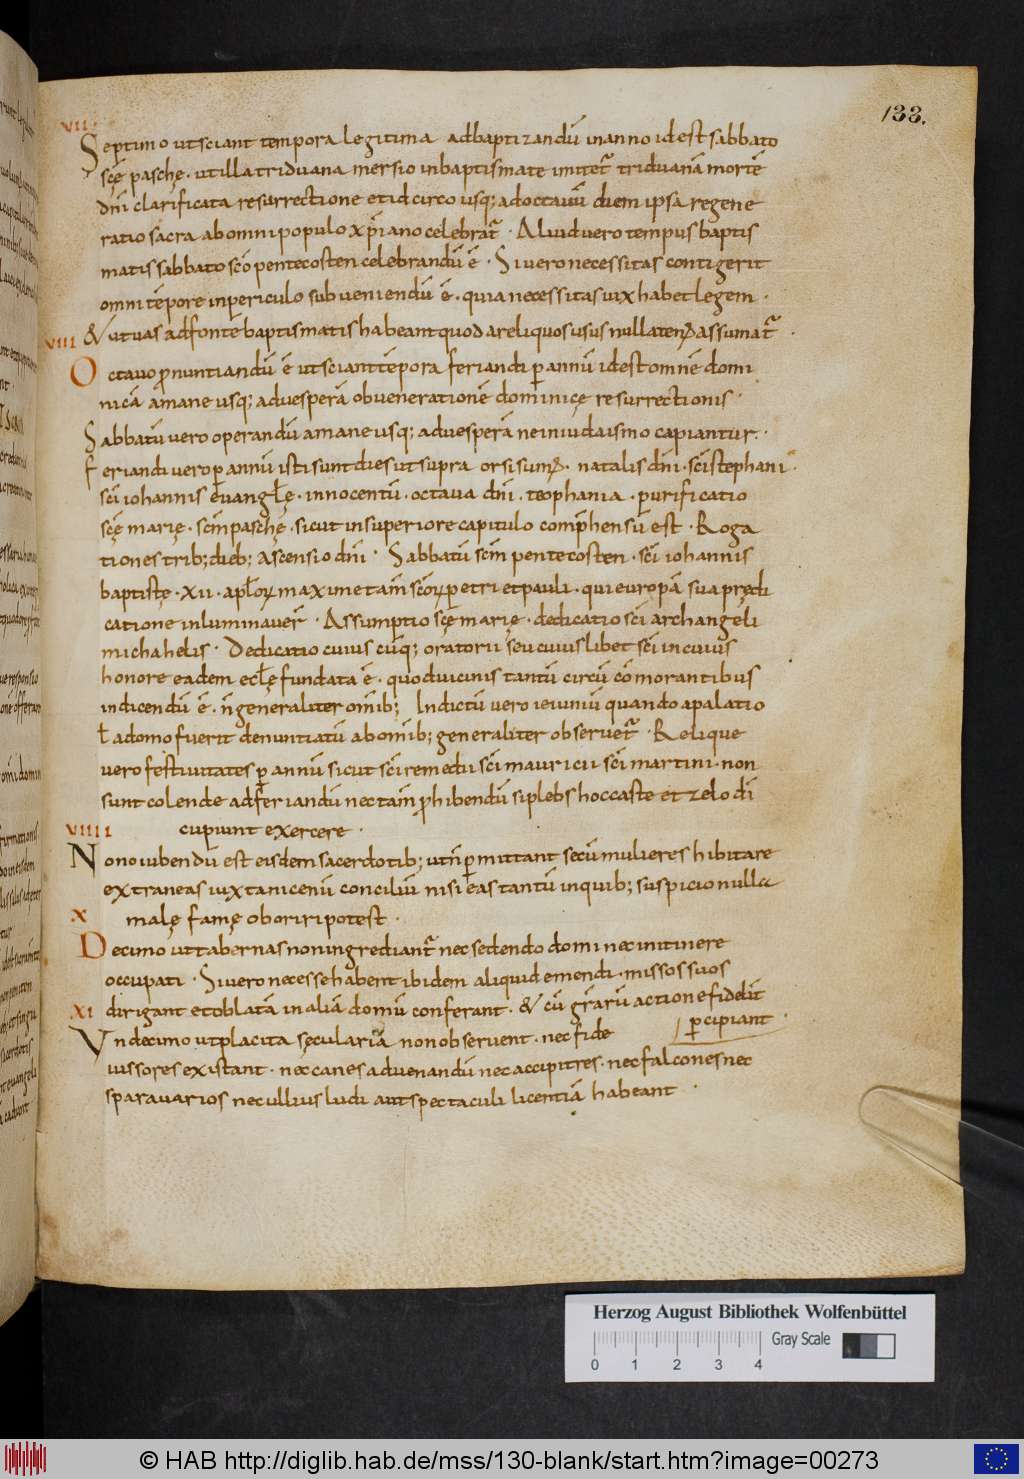 133.
VII.
Septimo ut sciant tempora legitima ad baptizandū in anno id est sabbato
scę paschę. ut illa triduana mersio in baptismate imitet̄ triduanā mortē
dn̄i clarificata resurrectione et idcirco usq; ad octauū diem ipsa regene
ratio sacra ab omni populo xp̄iano celebrat̄. Aliud uero tempus baptis
matis sabbato sc̄o pentecosten celebrandū ē. Si uero necessitas contigerit
omni tēpore in periculo subueniendū ē. quia necessitas uix habet legem.
& ut uas ad fontē baptismatis habeant quod a reliquos usus nullatenꝰ assumat̄.
VIII
Octauo ꝓnuntiandū ē ut sciant tēpora feriandi ꝑ annū id est omnē domi
nicā a mane usq; ad uesperā ob uenerationē dominicę resurrectionis.
Sabbatū uero operandū a mane usq; ad uesperā ne in iudaismo capiantur.
Feriandi uero ꝑ annū isti sunt dies ut supra orsi sumꝰ. natalis dn̄i. sc̄i stephani.
sc̄i iohannis euangłę. innocentū. octaua dn̄i. teophania. purificatio
scę marię. sc̄m paschę. sicut in superiore capitulo comp̄hensū est. Roga
tiones trib; dieb; ascensio dn̄i. Sabbatū sc̄m pentecosten. sc̄i iohannis
baptistę. XII. aplōꝝ maxime tam̄ sc̄oꝝ petri et pauli. qui europā sua prędi
catione inluminauer̄. Assumptio scę marię. dedicatio sc̄i archangeli
michahelis. Dedicatio cuius cūq; oratorii seu cuiuslibet sc̄i in cuius
honore eadem ecłę fundata ē. quod uicinis tantū circū cōmorantibus
indicendū ē. n̄ generaliter om̄ib; Indictū uero ieiuniū quando a palatio
ł a domo fuerit denuntiatū ab om̄ib; generaliter obseruet̄. Relique
uero festiuitates ꝑ annū sicut sc̄i remedii sc̄i mauricii sc̄i martini. non
sunt colende ad feriandū nec tam̄ ꝓhibendū si plebs hoc caste et zelo dī
cupiunt exercere.
VIIII
Nono iubendū est eisdem sacerdotib; ut n̄ ꝑmittant secū mulieres hibitare
extraneas iuxta nicenū conciliū nisi eas tantū in quib; suspicio nulla
malę famę oboriri potest.
X
Decimo ut tabernas non ingrediant̄ nec sedendo domi nec in itinere
occupati. Si uero necesse habent ibidem aliquid emendi. missos suos
dirigant et oblatā in aliā domū conferant. & cū gr̄arū actione fideliū
ꝑcipiant.
XI
Undecimo ut placita sęcularia non obseruent. nec fide
iussores existant. nec canes ad uenandū nec accipitres. nec falcones nec
sparauarios nec ullius ludi aut spectaculi licentiā habeant.
Herzog August Bibliothek Wolfenbüttel
Gray Scale
0 1 2 3 4
© HAB http://diglib.hab.de/mss/130-blank/start.htm?image=00273